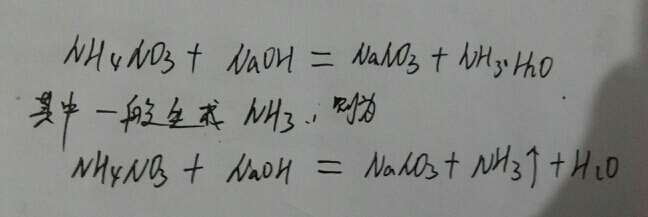 NH4NO3 + NaOH = NaNO3 + NH3·H2O
其中一般生成 NH3, 则为
NH4NO3 + NaOH = NaNO3 + NH3↑ + H2O